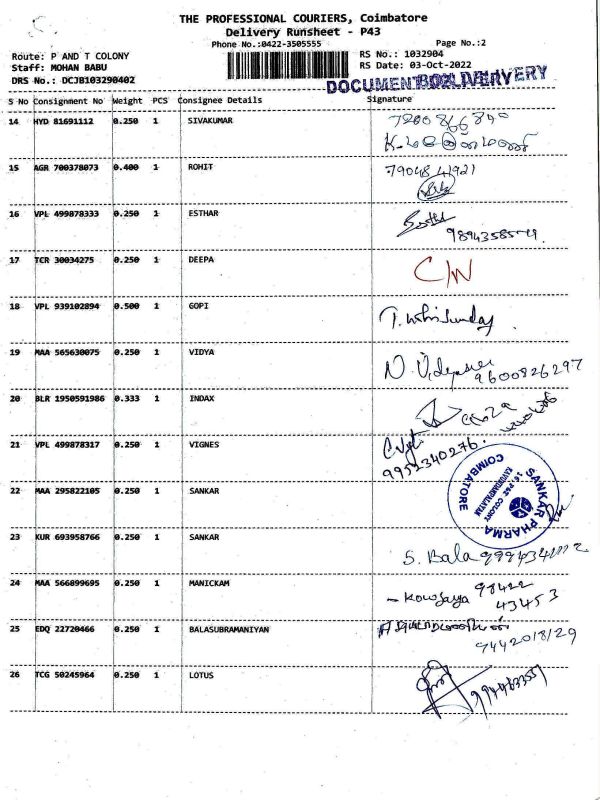 THE PROFESSIONAL COURIERS, Coimbatore
Delivery Runsheet - P43
Phone No.:0422-3505555
Page No.:2
Route: P AND T COLONY
RS No.: 1032904
Staff: MOHAN BABU
RS Date: 03-Oct-2022
DRS No.: DCJB103290402
DOCUMENT DELIVERY
S No Consignment No Weight PCS Consignee Details Signature
14 HYD 81691112 0.250 1 SIVAKUMAR
15 AGR 700378073 0.400 1 ROHIT 7904841921
16 VPL 499878333 0.250 1 ESTHAR
17 TCR 30034275 0.250 1 DEEPA C/N
18 VPL 939102894 0.500 1 GOPI
19 MAA 565630075 0.250 1 VIDYA 9600826297
20 BLR 1950591986 0.333 1 INDAX
21 VPL 499878317 0.250 1 VIGNES 9952340276.
22 MAA 295822105 0.250 1 SANKAR SANKAR PHARMA COIMBATORE
23 KUR 693958766 0.250 1 SANKAR S. Bala
24 MAA 566899695 0.250 1 MANICKAM 98422
43453
25 EDQ 22720466 0.250 1 BALASUBRAMANIYAN
9442018129
26 TCG 50245964 0.250 1 LOTUS